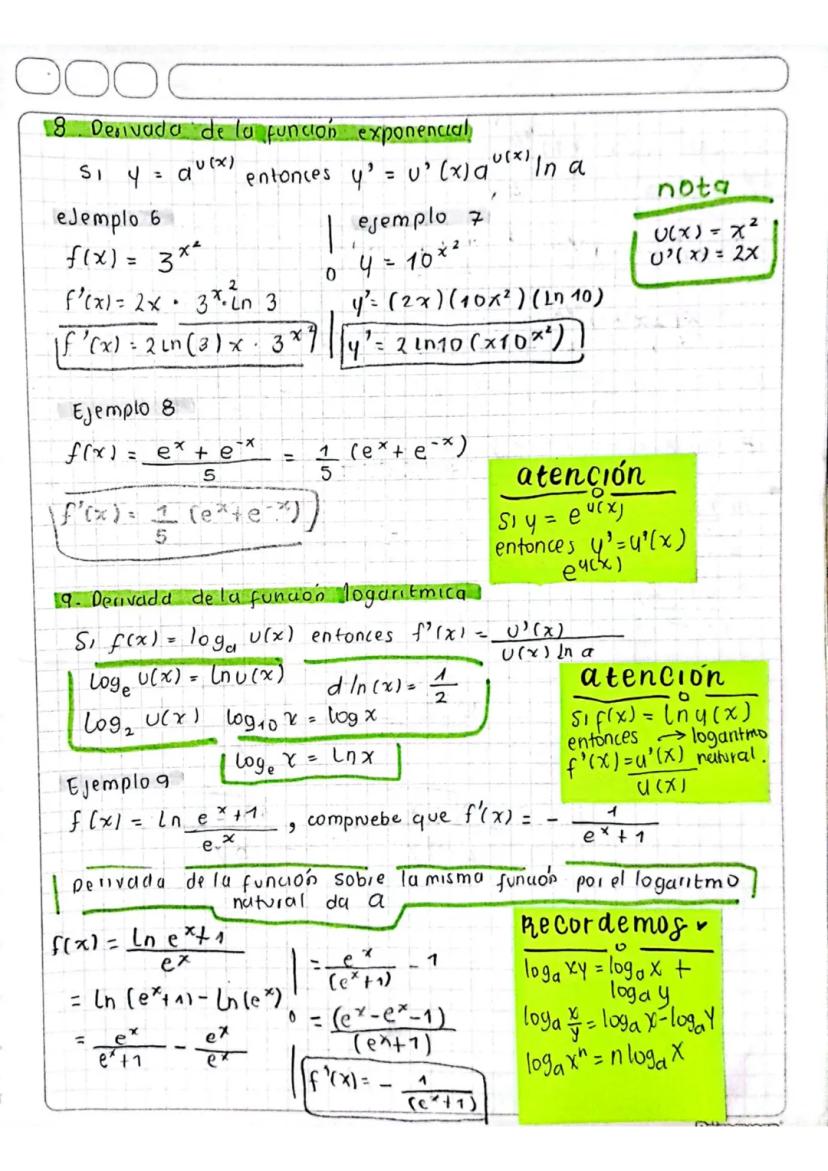 8. Derivada de la función exponencial
Si y = a^u(x) entonces y' = u'(x) a^u(x) ln a
nota
u(x) = x²
u'(x) = 2x
ejemplo 6
f(x) = 3^x²
f'(x) = 2x · 3^x² · Ln 3
f'(x) = 2 ln(3) x · 3^x²
ejemplo 7
y = 10^x²
y' = (2x) (10x²) (Ln 10)
y' = 2 ln10 (x10^x²)
Ejemplo 8
f(x) = (e^x + e^-x)/5 = 1/5 (e^x + e^-x)
f'(x) = 1/5 (e^x + e^-x)
atención
Si y = e^u(x)
entonces y' = u'(x)
e^u(x)
9. Derivada de la función logaritmica
Si f(x) = log_a u(x) entonces f'(x) = u'(x)/(u(x) ln a)
Log_e u(x) = Ln u(x) d ln(x) = 1/2
Log_2 u(x) log_10 x = log x
Log_e x = Ln x
atención
Si f(x) = ln u(x)
entonces → logaritmo
f'(x) = u'(x)/u(x) natural.
Ejemplo 9
f(x) = Ln (e^x + 1)/e^x, compruebe que f'(x) = - 1/(e^x + 1)
Derivada de la función sobre la misma función por el logaritmo
natural da a
f(x) = Ln e^x+1/e^x
= Ln (e^x+1) - Ln (e^x)
= e^x/(e^x+1) - e^x/e^x
= e^x/(e^x+1) - 1
= (e^x - e^x - 1)/(e^x+1)
f'(x) = - 1/(e^x+1)
Recordemos
log_a xy = log_a x +
log_a y
log_a x/y = log_a x - log_a y
log_a x^n = n log_a x